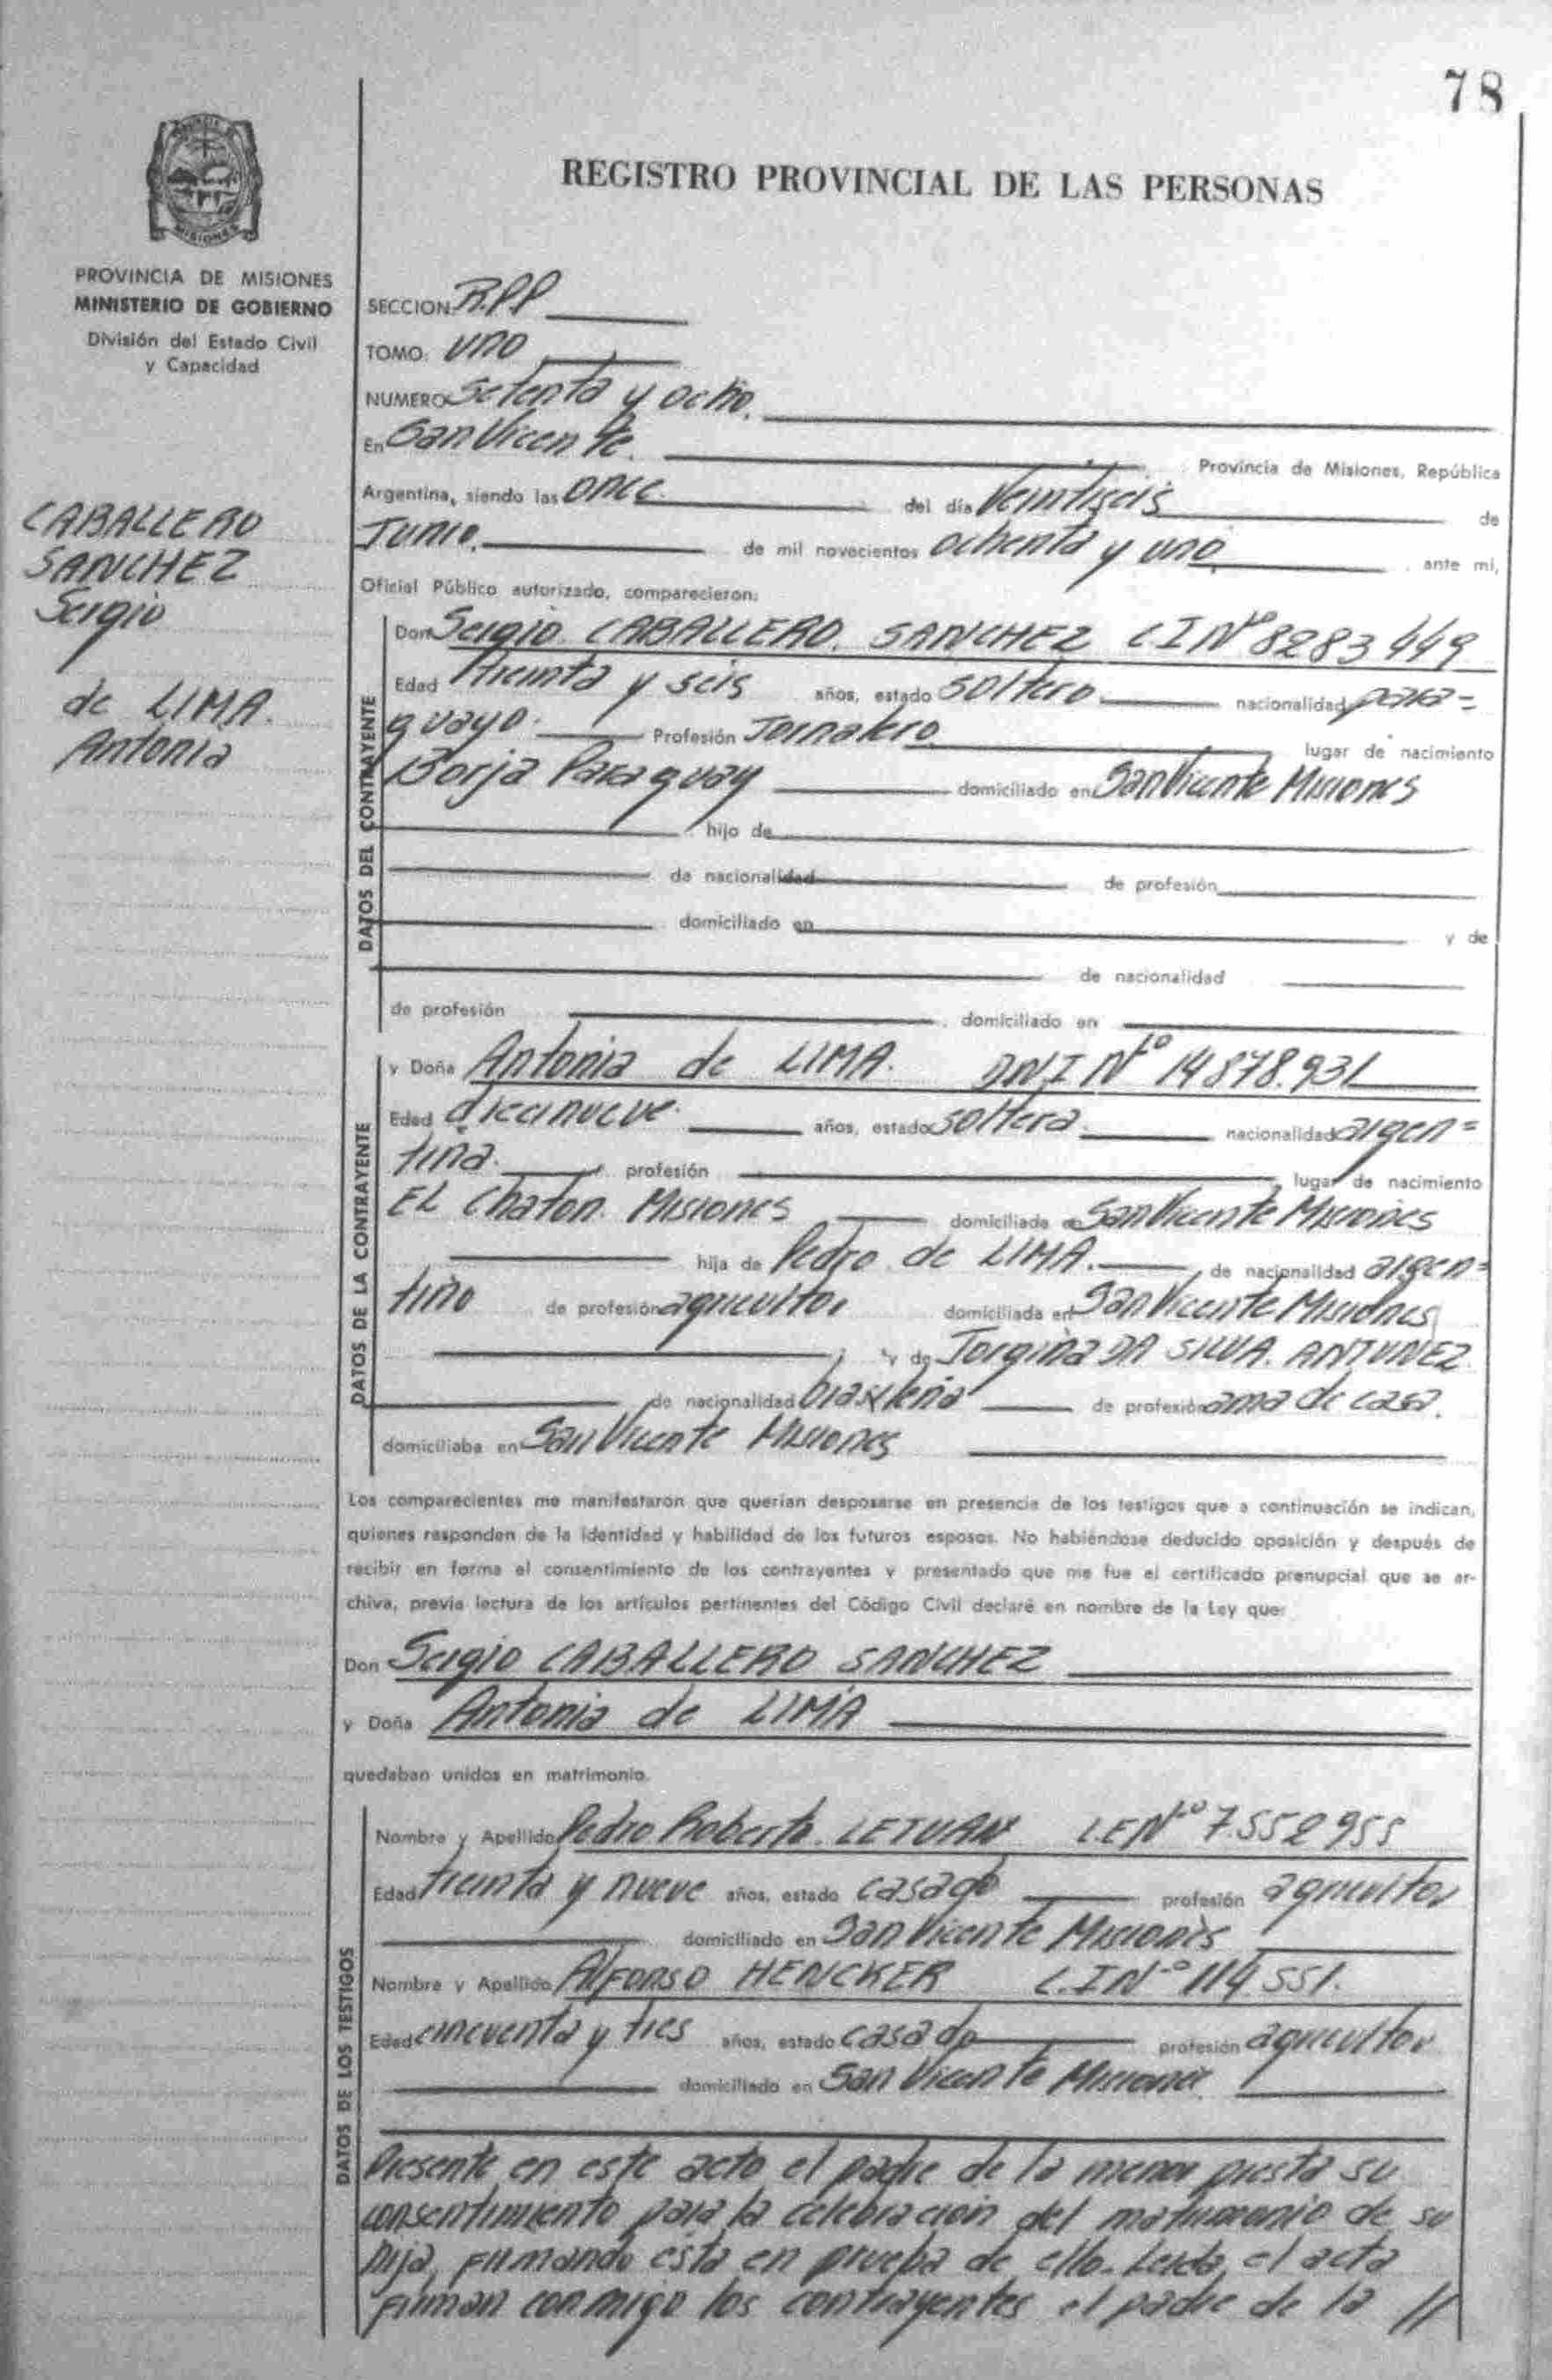 78
PROVINCIA DE MISIONES
MINISTERIO DE GOBIERNO
División del Estado Civil
y Capacidad
CABALLERO
SANCHEZ
Sergio
de LIMA.
Antonia
REGISTRO PROVINCIAL DE LAS PERSONAS
SECCION R.P.P
TOMO: uno
NUMERO setenta y ocho.
En San Vicente. Provincia de Misiones, República
Argentina, siendo las once del día veintiseis de
Junio. de mil novecientos ochenta y uno ante mí,
Oficial Público autorizado, comparecieron:
DATOS DEL CONTRAYENTE
Don Sergio CABALLERO SANCHEZ C I Nº 8283449
Edad treinta y seis años, estado soltero nacionalidad para=
guayo. Profesión Jornalero lugar de nacimiento
Borja Paraguay domiciliado en San Vicente Misiones
hijo de
de nacionalidad de profesión
domiciliado en y de
de nacionalidad
de profesión domiciliado en
DATOS DE LA CONTRAYENTE
y Doña Antonia de LIMA. DNI Nº 14878.931
Edad diecinueve. años, estado soltera nacionalidad argen=
tina. profesión lugar de nacimiento
EL Chaton. Misiones domiciliada en San Vicente Misiones
hija de Pedro de LIMA. de nacionalidad argen=
tino de profesión agricultor domiciliada en San Vicente Misiones
y de Jorgina DA SILVA. ANTUNEZ
de nacionalidad brasileña de profesión ama de casa.
domiciliaba en San Vicente Misiones
Los comparecientes me manifestaron que querían desposarse en presencia de los testigos que a continuación se indican,
quienes responden de la identidad y habilidad de los futuros esposos. No habiéndose deducido oposición y después de
recibir en forma el consentimiento de los contrayentes y presentado que me fue el certificado prenupcial que se ar-
chiva, previa lectura de los artículos pertinentes del Código Civil declaré en nombre de la Ley que:
Don Sergio CABALLERO SANCHEZ
y Doña Antonia de LIMA
quedaban unidos en matrimonio.
DATOS DE LOS TESTIGOS
Nombre y Apellido Pedro Roberto LETUAN L.E Nº 7.552955
Edad treinta y nueve años, estado casado profesión agricultor
domiciliado en San Vicente Misiones
Nombre y Apellido Alfonso HENCKER C.I Nº 114.551.
Edad cincuenta y tres años, estado casado profesión agricultor
domiciliado en San Vicente Misiones
Presente en este acto el padre de la menor presta su
consentimiento para la celebracion del matrimonio de su
hija, firmando esta en prueba de ello. Leida el acta
firman conmigo los contrayentes el padre de la //